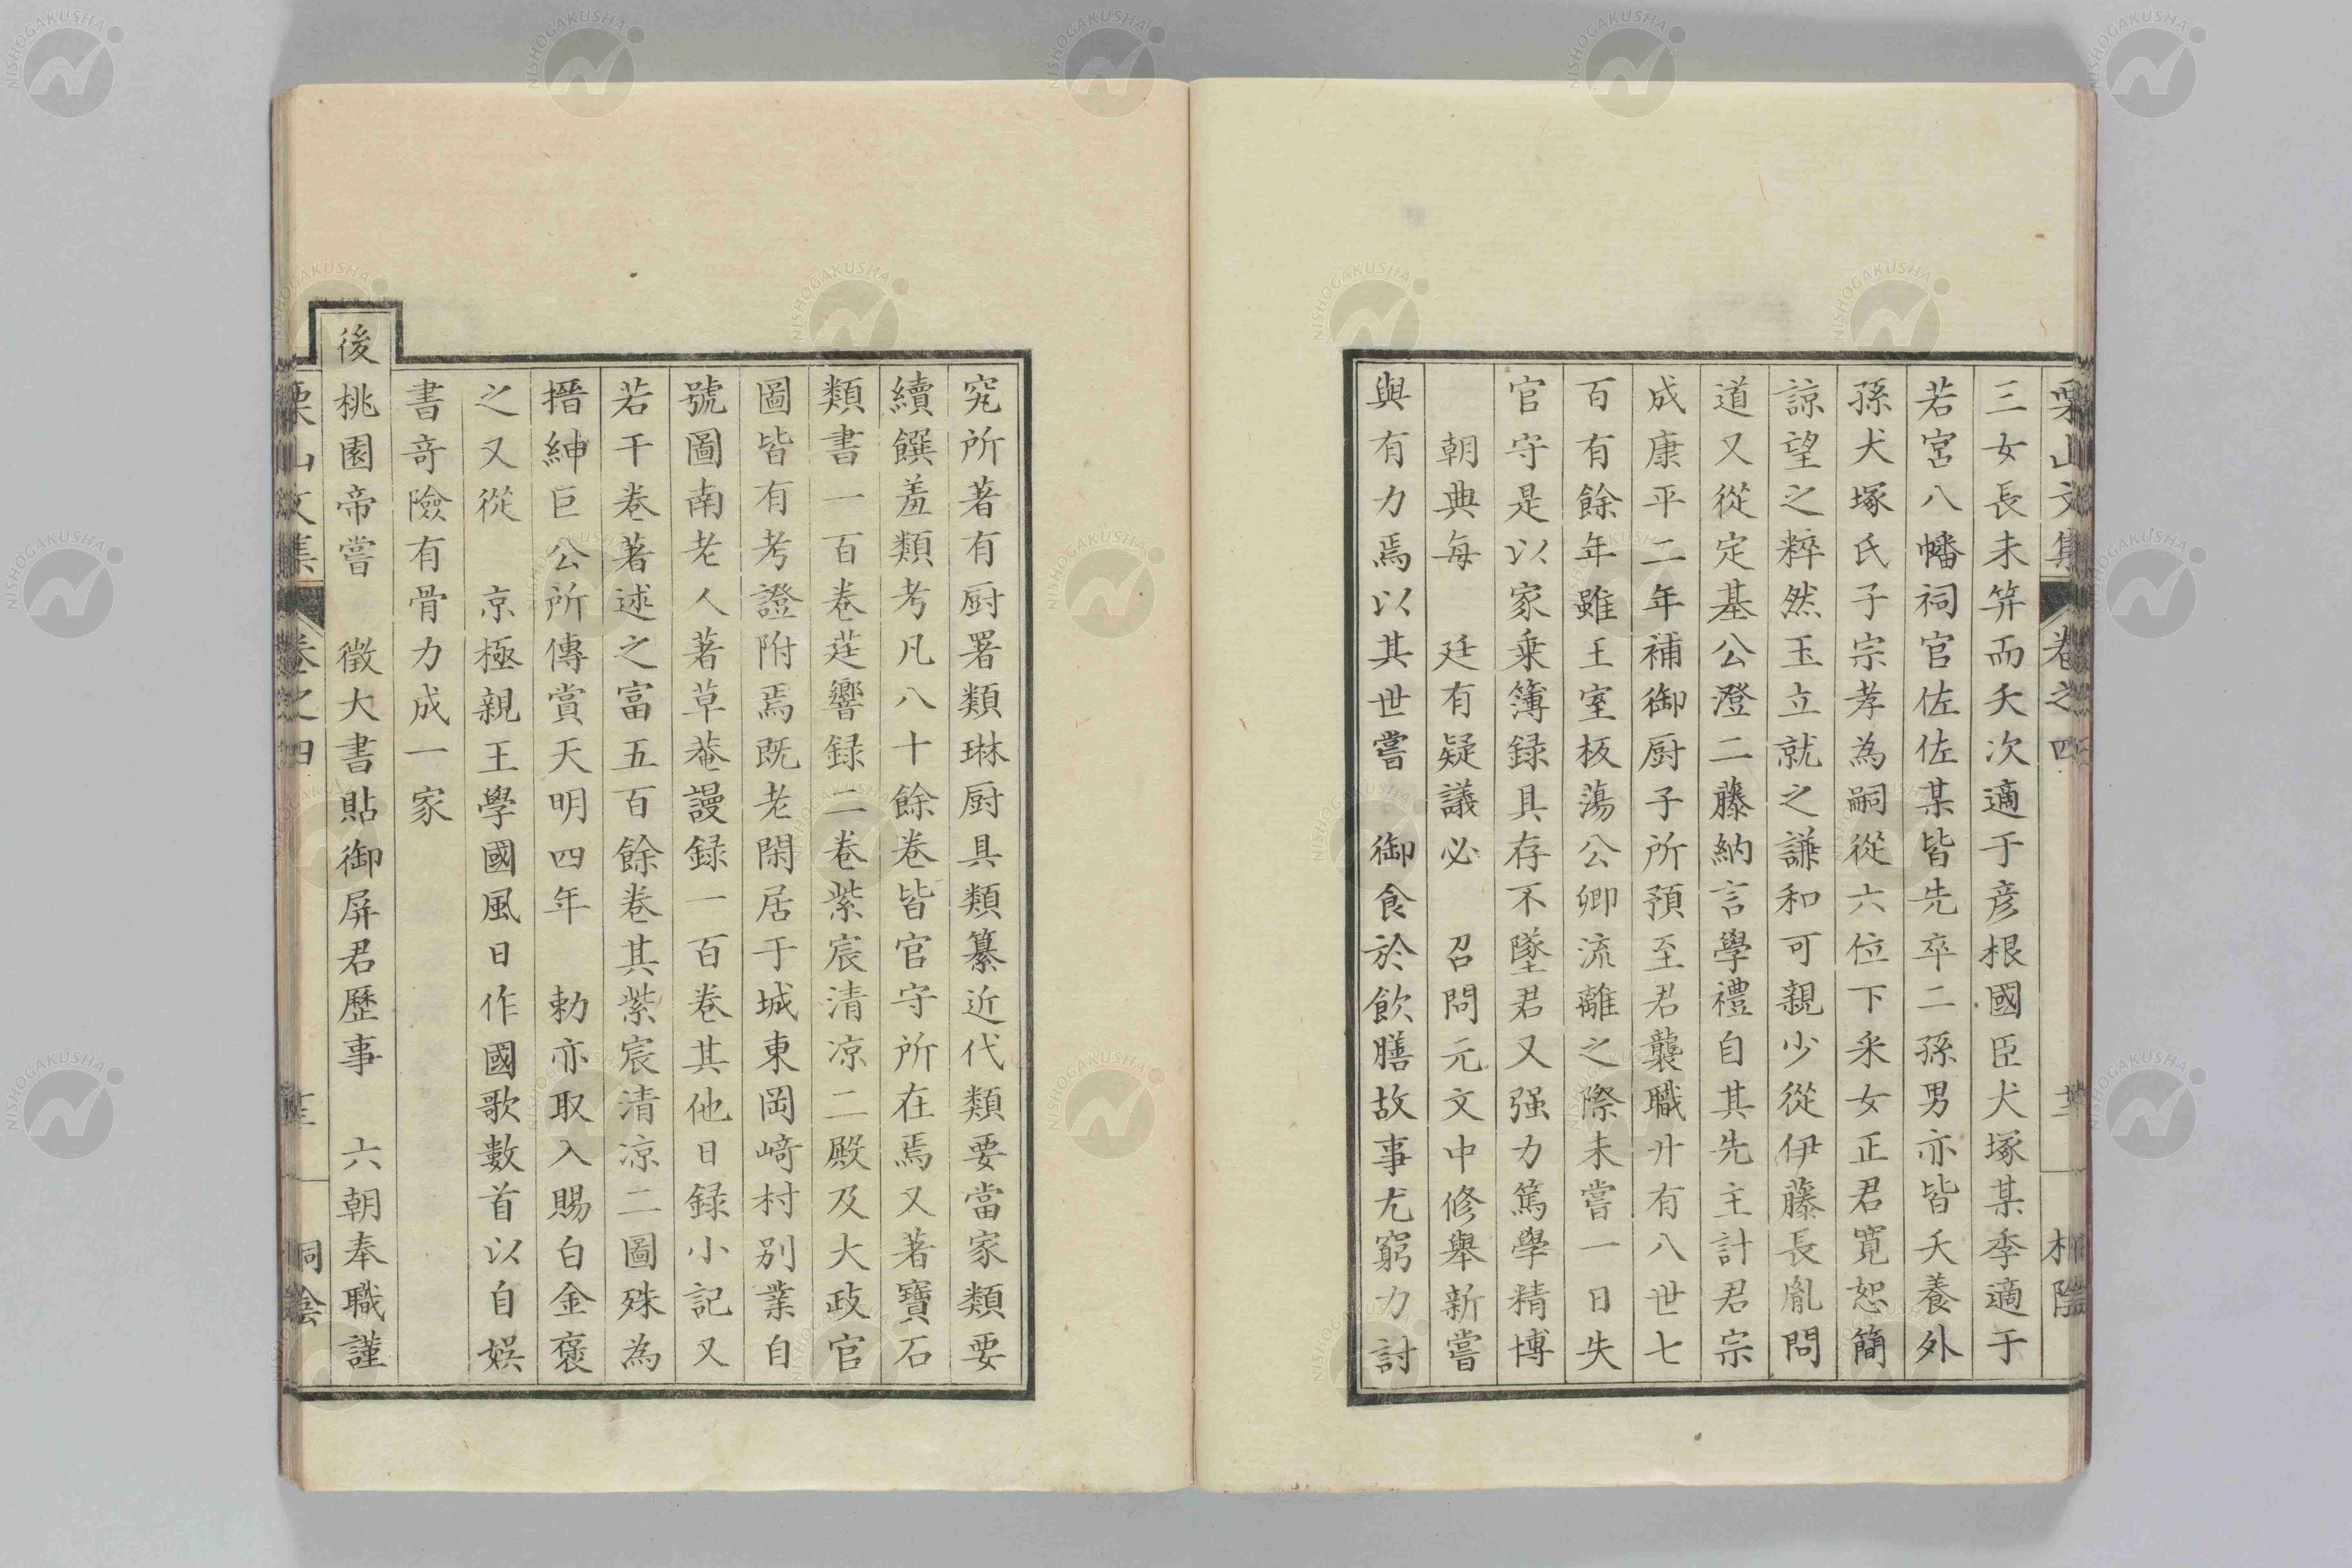 栗山文集 卷之四
三女長未笄而夭次適于彦根國臣犬塚某季適于
若宮八幡祠官佐佐某皆先卒二孫男亦皆夭養外
孫犬塚氏子宗孝為嗣從六位下釆女正君寛恕簡
諒望之粹然玉立就之謙和可親少從伊藤長胤問
道又從定基公澄二藤納言學禮自其先主計君宗
成康平二年補御厨子所預至君襲職廿有八世七
百有餘年雖王室板蕩公卿流離之際未嘗一日失
官守是以家乘簿録具存不墜君又强力篤學精博
朝典每 廷有疑議必 召問元文中修舉新嘗
與有力焉以其世嘗 御食於飲膳故事尤窮力討
究所著有厨署類琳厨具類纂近代類要當家類要
續饌羞類考凡八十餘卷皆官守所在焉又著寶石
類書一百卷莛響録二卷紫宸清凉二殿及大政官
圖皆有考證附焉既老閑居于城東岡﨑村别業自
號圖南老人著草菴謾録一百卷其他日録小記又
若干卷著述之富五百餘卷其紫宸清凉二圖殊為
搢紳巨公所傳賞天明四年 勅亦取入賜白金褒
之又從 京極親王學國風日作國歌數首以自娛
書竒險有骨力成一家
後桃園帝嘗 徵大書貼御屏君歷事 六朝奉職謹
栗山文集 卷之四